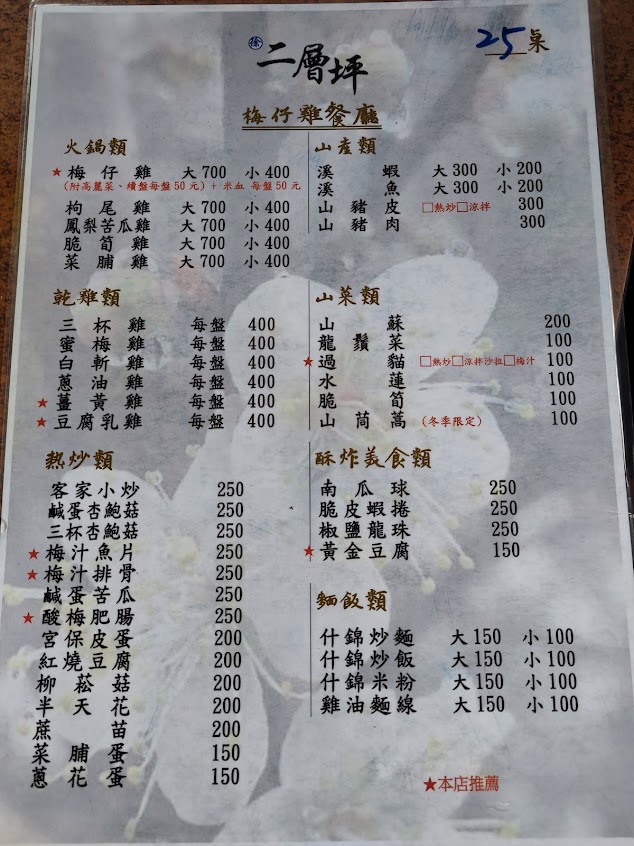 25桌
徐 二層坪
梅仔雞餐廳
火鍋類
★梅仔雞 大700 小400
(附高麗菜、續盤每盤50元)+米血 每盤50元
枸尾雞 大700 小400
鳳梨苦瓜雞 大700 小400
脆筍雞 大700 小400
菜脯雞 大700 小400
乾雞類
三杯雞 每盤 400
蜜梅雞 每盤 400
白斬雞 每盤 400
蔥油雞 每盤 400
★薑黃雞 每盤 400
★豆腐乳雞 每盤 400
熱炒類
客家小炒 250
鹹蛋杏鮑菇 250
三杯杏鮑菇 250
★梅汁魚片 250
★梅汁排骨 250
鹹蛋苦瓜 250
★酸梅肥腸 250
宮保皮蛋 200
紅燒豆腐 200
柳菘菇 200
半天花 200
蔗苗 200
菜脯蛋 150
蔥花蛋 150
山產類
溪蝦 大300 小200
溪魚 大300 小200
山豬皮 □熱炒□涼拌 300
山豬肉 300
山菜類
山蘇 200
龍鬚菜 100
★過貓 □熱炒□涼拌沙拉□梅汁 100
水蓮 100
脆筍 100
山茼蒿 (冬季限定) 100
酥炸美食類
南瓜球 250
脆皮蝦捲 250
椒鹽龍珠 250
★黃金豆腐 150
麵飯類
什錦炒麵 大150 小100
什錦炒飯 大150 小100
什錦米粉 大150 小100
雞油麵線 大150 小100
★本店推薦